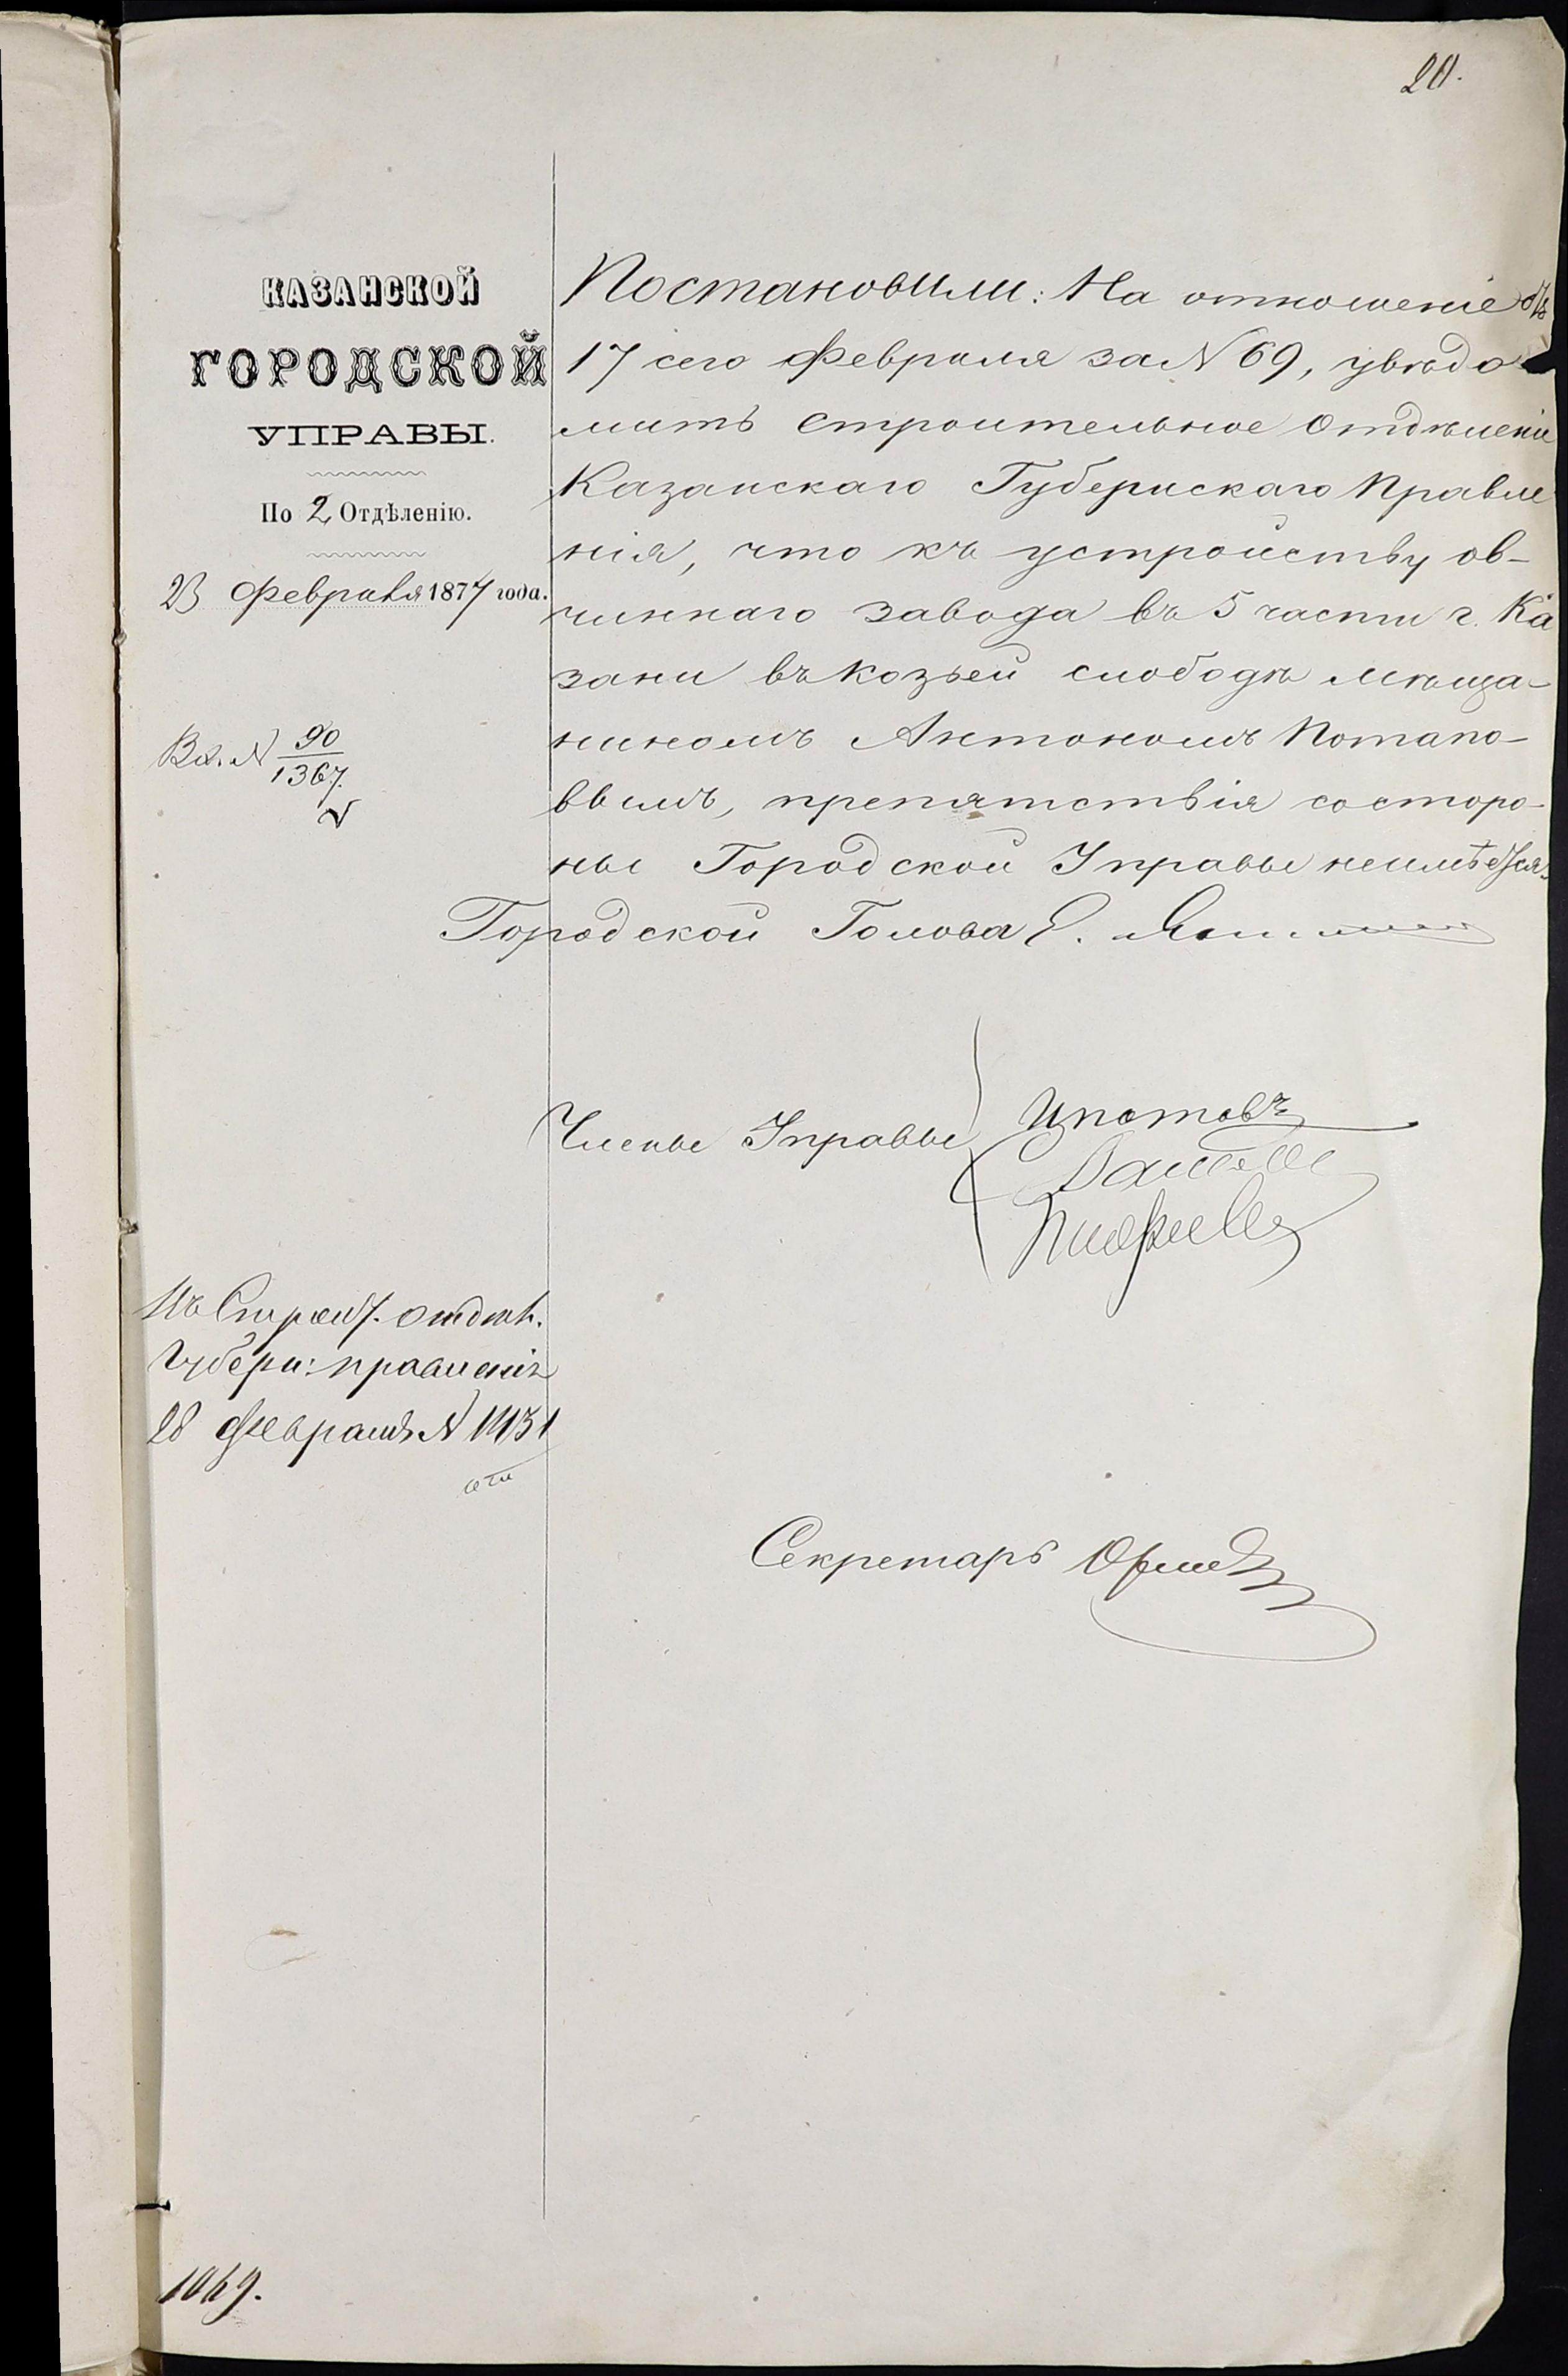 20.
КАЗАНСКОЙ
ГОРОДСКОЙ
УПРАВЫ.
По 2 Отдѣленію.
23 февраля 1877 года.
Вх. № 90
1367.
Постановили: На отношеніе отъ
17 сего Февраля за № 69, увѣдо
мить Строительное Отдѣленіе
Казанскаго Губернскаго Правле
нія, что къ устройству ов-
чиннаго завода въ 5 части г. Ка
зани въ Козьей слободѣ мѣща-
ниномъ Антономъ Потапо-
вымъ, препятствія со сторо-
ны Городской Управы неимѣется.
Городской Голова Е.
Члены Управы
Въ Строит. отдѣл.
Губерн: правленія
28 февраля № 1131
Секретарь
1069.